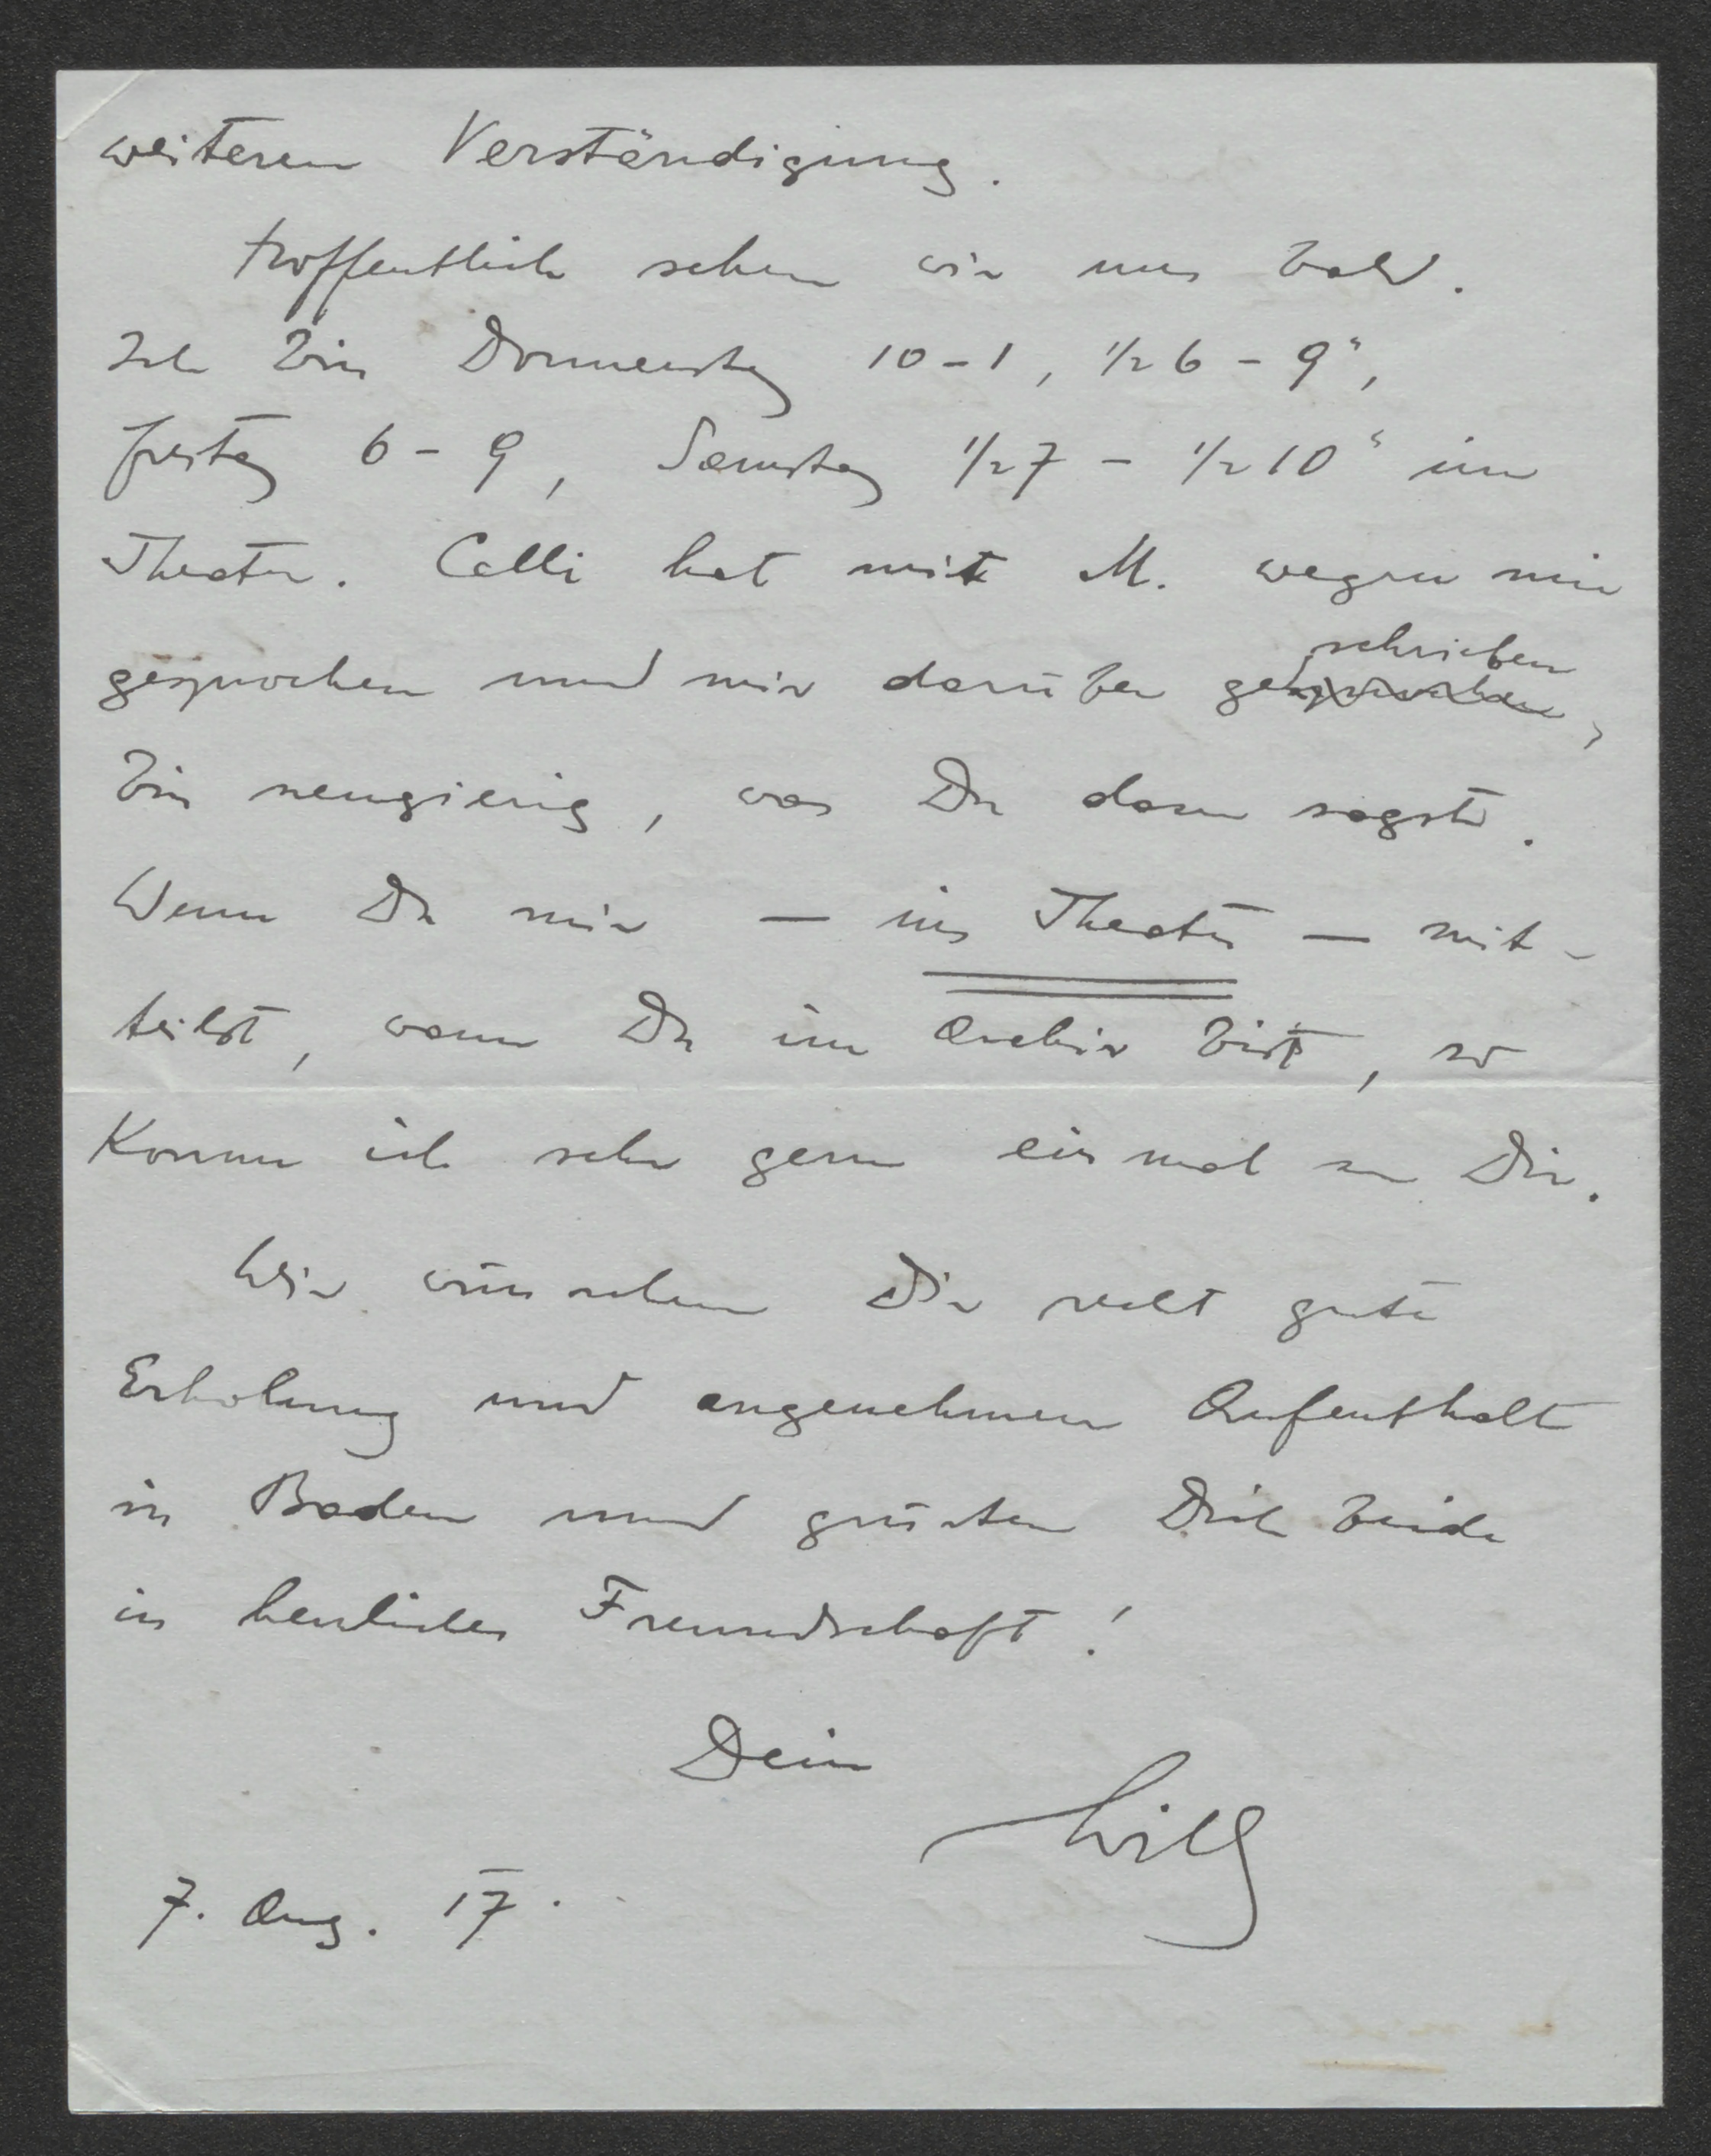 weiteren Verständigung.
Hoffentlich sehen wir uns bald.
Ich bin Donnerstag 10-1, 1/2 6 - 9",
Freitag 6-9, Samstag 1/2 7 - 1/2 10" im
Theater. Calli hat mit M. wegen mir
gesprochen und mir darüber geschrieben,
bin neugierig, was Du dazu sagst.
Wenn Du mir — ins Theater — mit-
teilst, wann Du im Archiv bist, so
komme ich sehr gern einmal zu Dir.
Wir wünschen Dir recht gute
Erholung und angenehmen Aufenthalt
in Baden und grüßen Dich beide
in herzlicher Freundschaft!
Dein
Willy
7. Aug. 17.